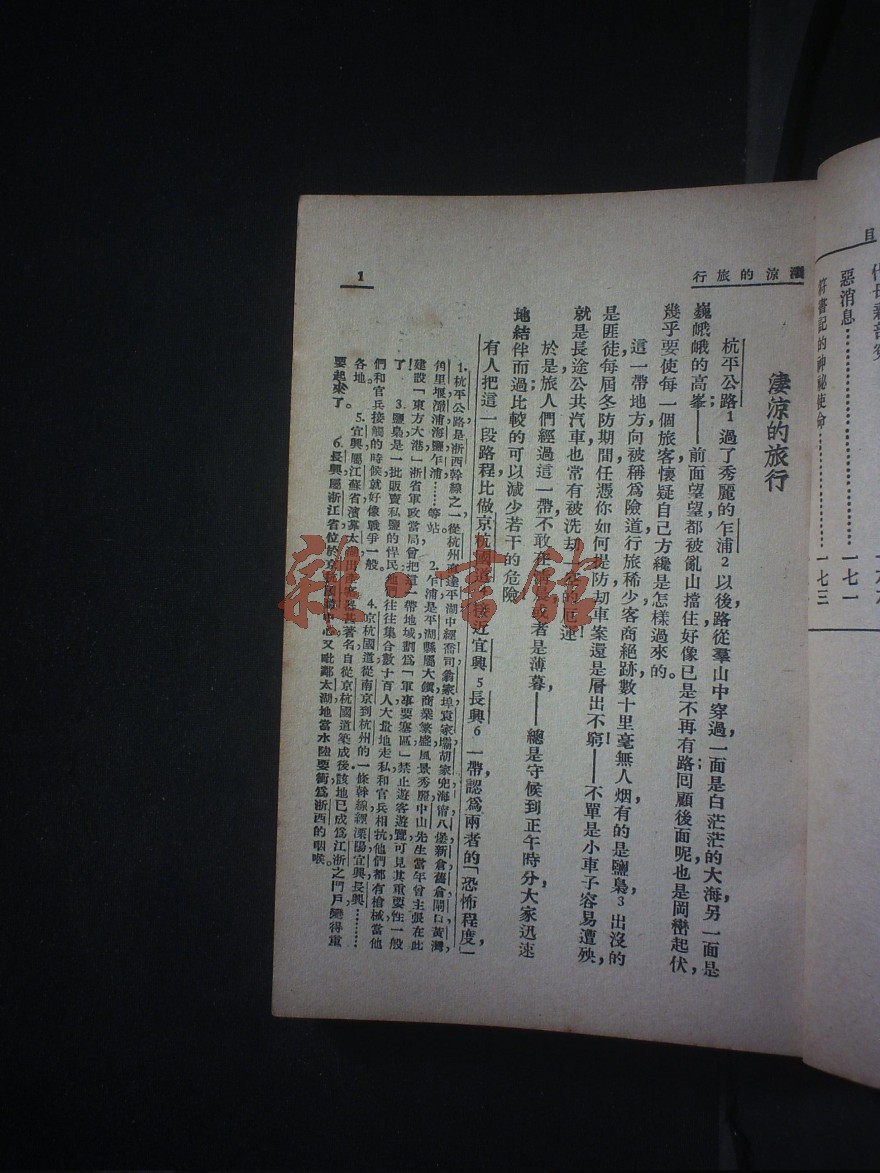 目
惡消息………………一七一
符書記的神祕使命………………一七三
淒涼的旅行
1
淒涼的旅行
杭平公路1過了秀麗的乍浦2以後，路從羣山中穿過，一面是白茫茫的大海，另一面是
巍峨峨的高峯；——前面望望都被亂山擋住，好像已是不再有路；回顧後面呢，也是岡巒起伏，
幾乎要使每一個旅客懷疑自己方纔是怎樣過來的。
這一帶地方，向被稱爲險道，行旅稀少，客商絕跡，數十里毫無人烟，有的是鹽梟3出沒的
是匪徒，每屆冬防期間，任憑你如何是防，刧車案還是層出不窮！——不單是小車子容易遭殃，
就是長途公共汽車也常有被洗刧一空的厄運！
於是旅人們經過這一帶，不敢在清晨或者是薄暮——總是守候到正午時分，大家迅速
地結伴而過，比較的可以減少若干的危險。
有人把這一段路程比做京杭國道4接近宜興5長興6一帶，認爲兩者的「恐怖程度」，
1.杭平公路是浙西幹線之一，從杭州直達平湖，中經喬司翁家埠袁家壩胡家兜海甯八堡新倉舊倉閘口黃灣
角里堰澉浦海鹽乍浦……等站。 2.乍浦是平湖縣屬大鎭，商業繁盛，風景秀麗，中山先生當年曾主張在此
建設「東方大港」，浙省軍政當局曾把這一帶地域劃爲「軍事要塞區」，禁止遊客遊覽，可見其重要性一般
了！ 3.鹽梟是一批販賣私鹽的悍民，他們往往集合數十百人大量地走私，和官兵相抗，他們都有槍械，當他
們和官兵接觸的時候，就好像戰爭一般。 4.京杭國道從南京到杭州的一條幹線，經溧陽宜興長興……
各地。 5.宜興屬江蘇省，濱靠太湖，出產客甚著名，自從京杭國道築成後，該地已成爲江浙之門戶，變得重
要起來了。 6.長興屬浙江省，位於京杭國道中心，又毗鄰太湖，地當水陸要衝，爲浙西的咽喉。
雜·書館